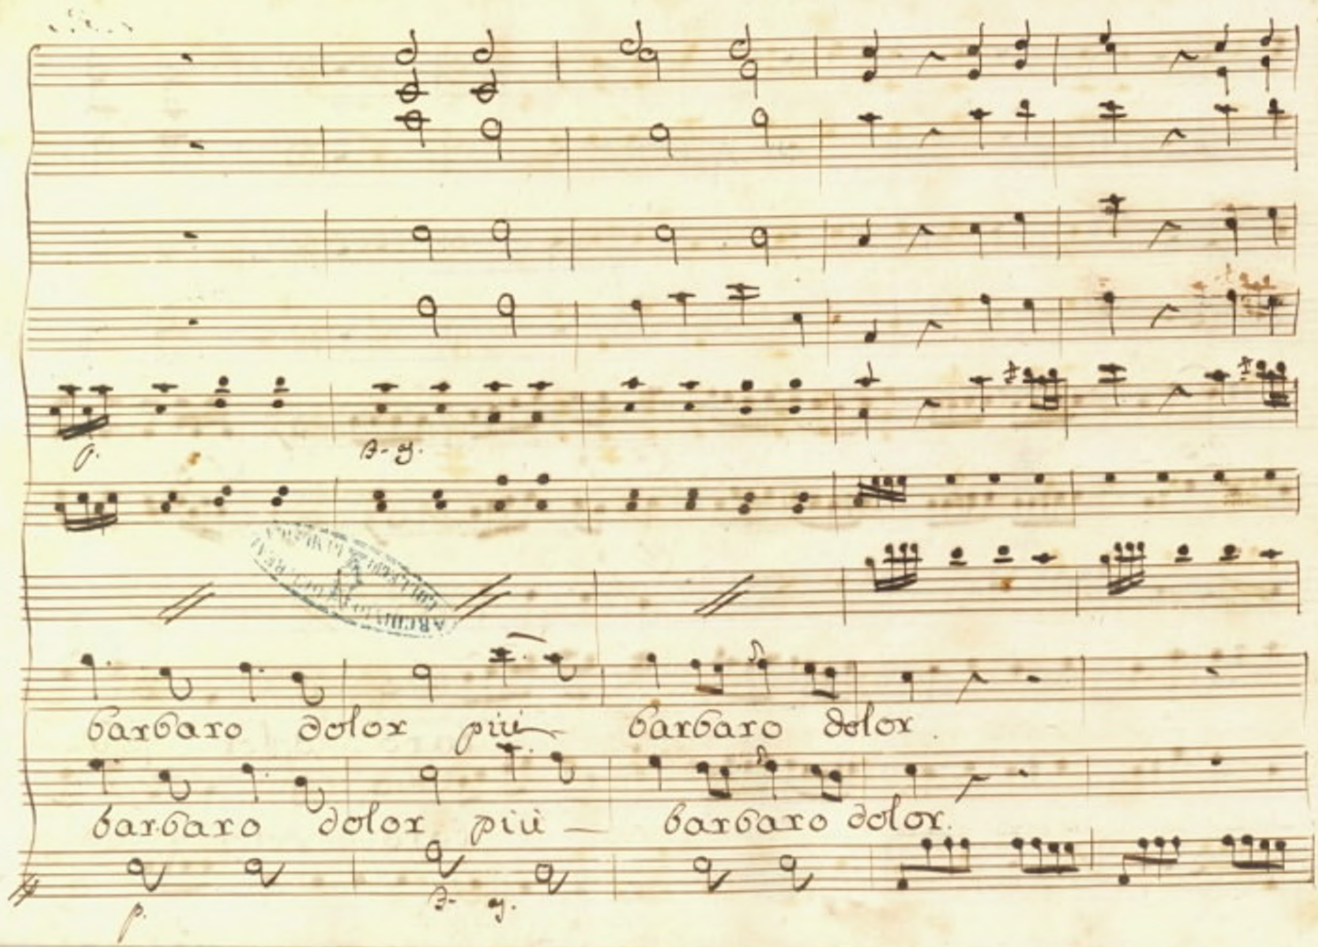 p.
barbaro dolor più barbaro dolor.
barbaro dolor più — barbaro dolor.
p.